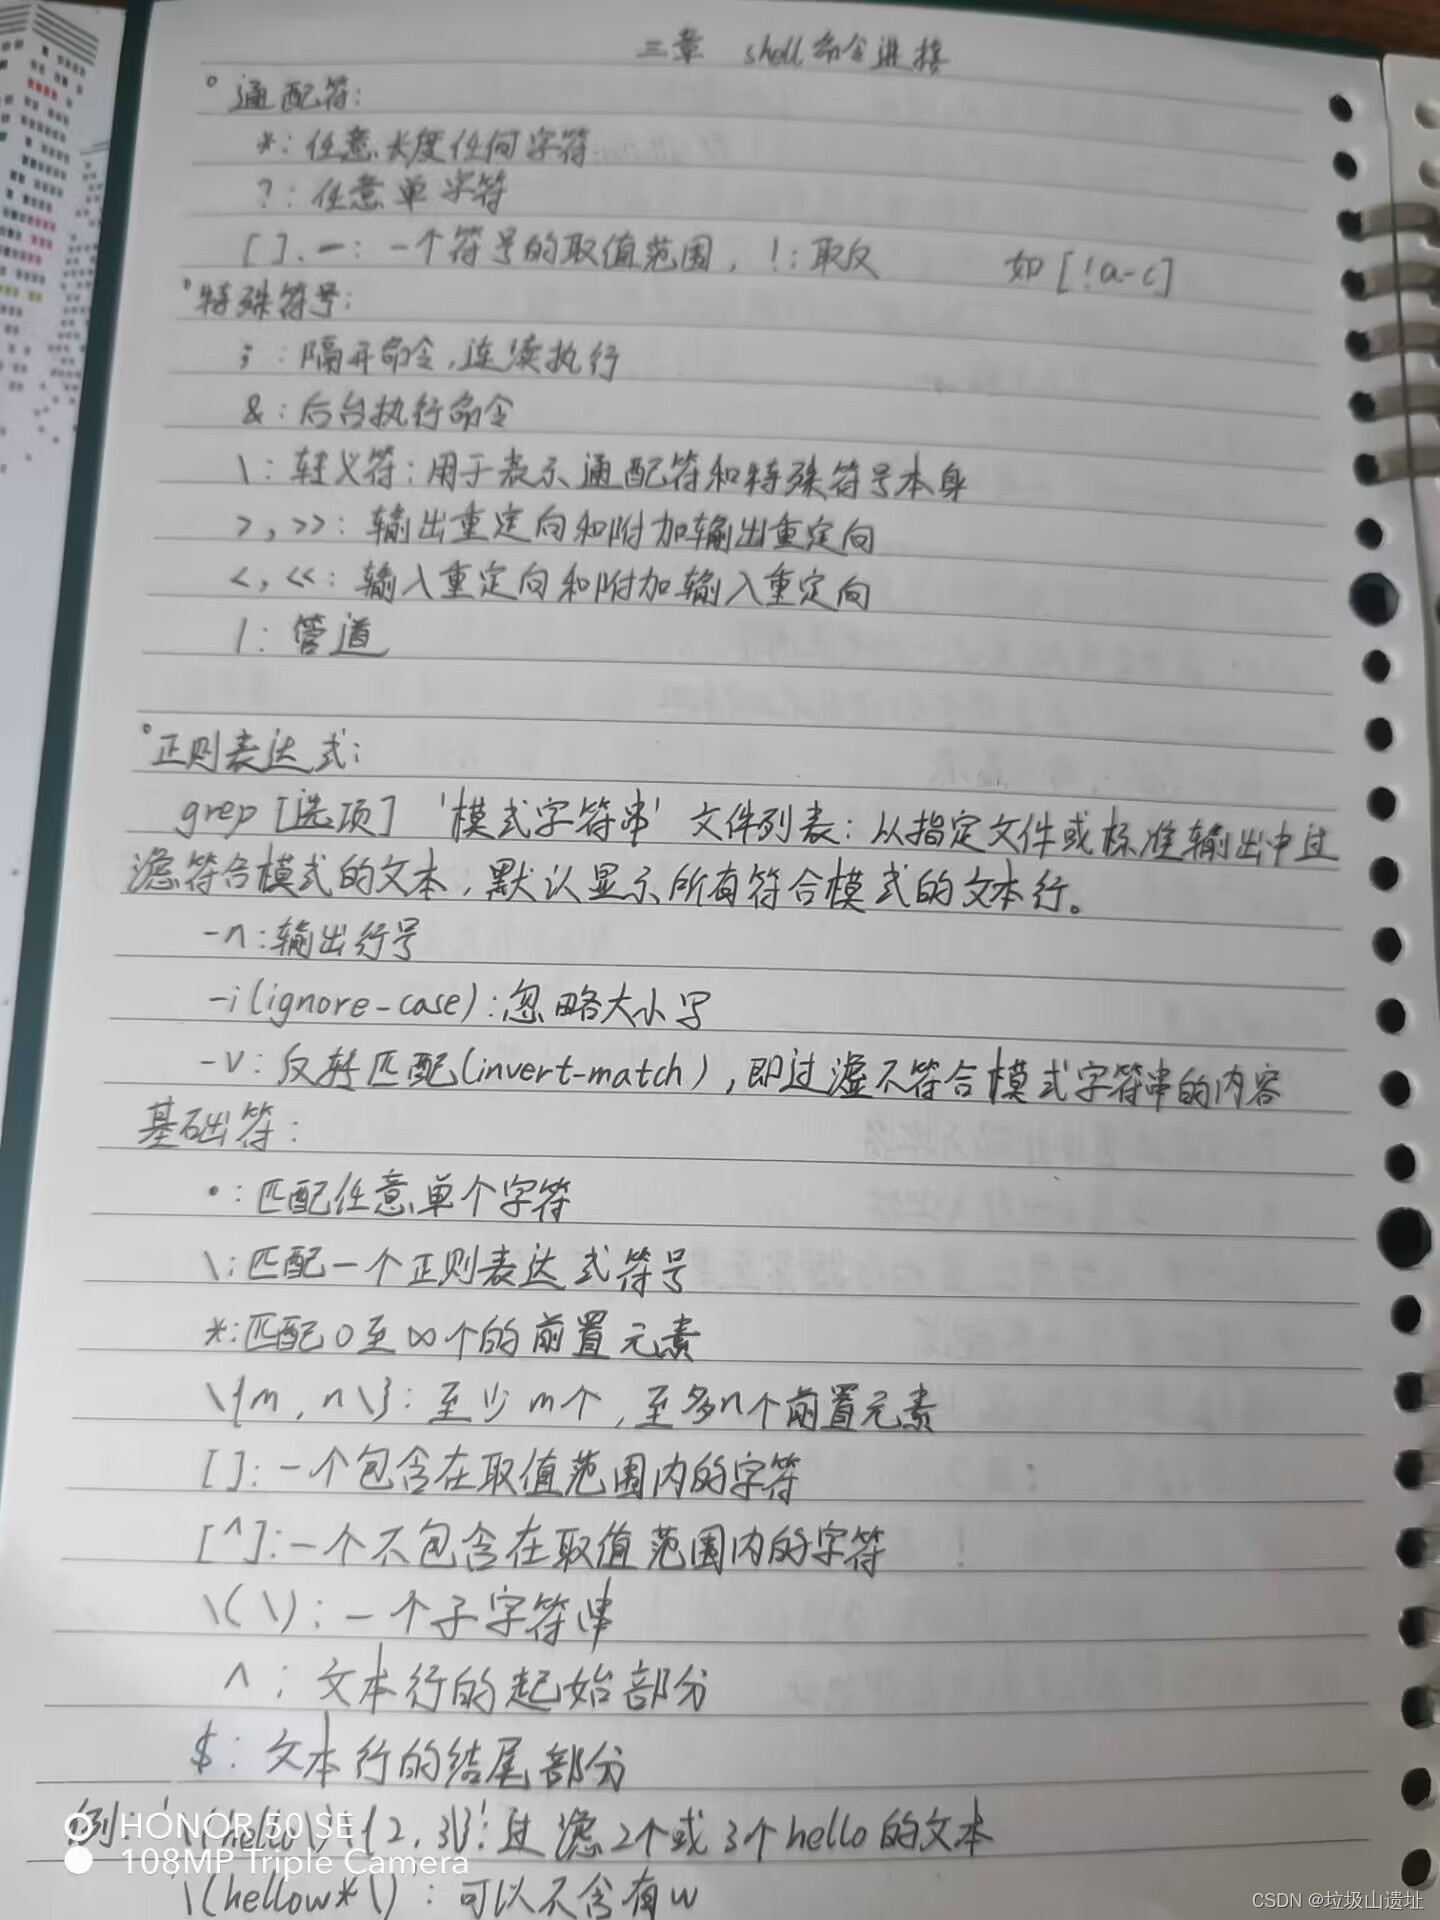 三章 shell命令进接
° 通配符:
*: 任意长度任何字符
?: 任意单字符
[ ]、—: 一个符号的取值范围, !: 取反 如[!a-c]
° 特殊符号:
; : 隔开命令,连续执行
&: 后台执行命令
\: 转义符: 用于表示通配符和特殊符号本身
>, >>: 输出重定向和附加输出重定向
<, <<: 输入重定向和附加输入重定向
|: 管道
° 正则表达式:
grep [选项] '模式字符串' 文件列表: 从指定文件或标准输出中过
滤符合模式的文本, 默认显示所有符合模式的文本行。
-n: 输出行号
-i(ignore-case): 忽略大小写
-v: 反转匹配(invert-match), 即过滤不符合模式字符串的内容
基础符:
·: 匹配任意单个字符
\: 匹配一个正则表达式符号
*: 匹配0至∞个的前置元素
\{m, n\}: 至少m个, 至多n个前置元素
[ ]: 一个包含在取值范围内的字符
[^]: 一个不包含在取值范围内的字符 !
\( \): 一个子字符串
^: 文本行的起始部分
$: 文本行的结尾部分
例: '\(hello\)\{2, 3\}': 过滤2个或3个hello的文本
HONOR 50 SE
108MP Triple Camera
\(hellow*\) : 可以不含有w
CSDN @垃圾山遗址